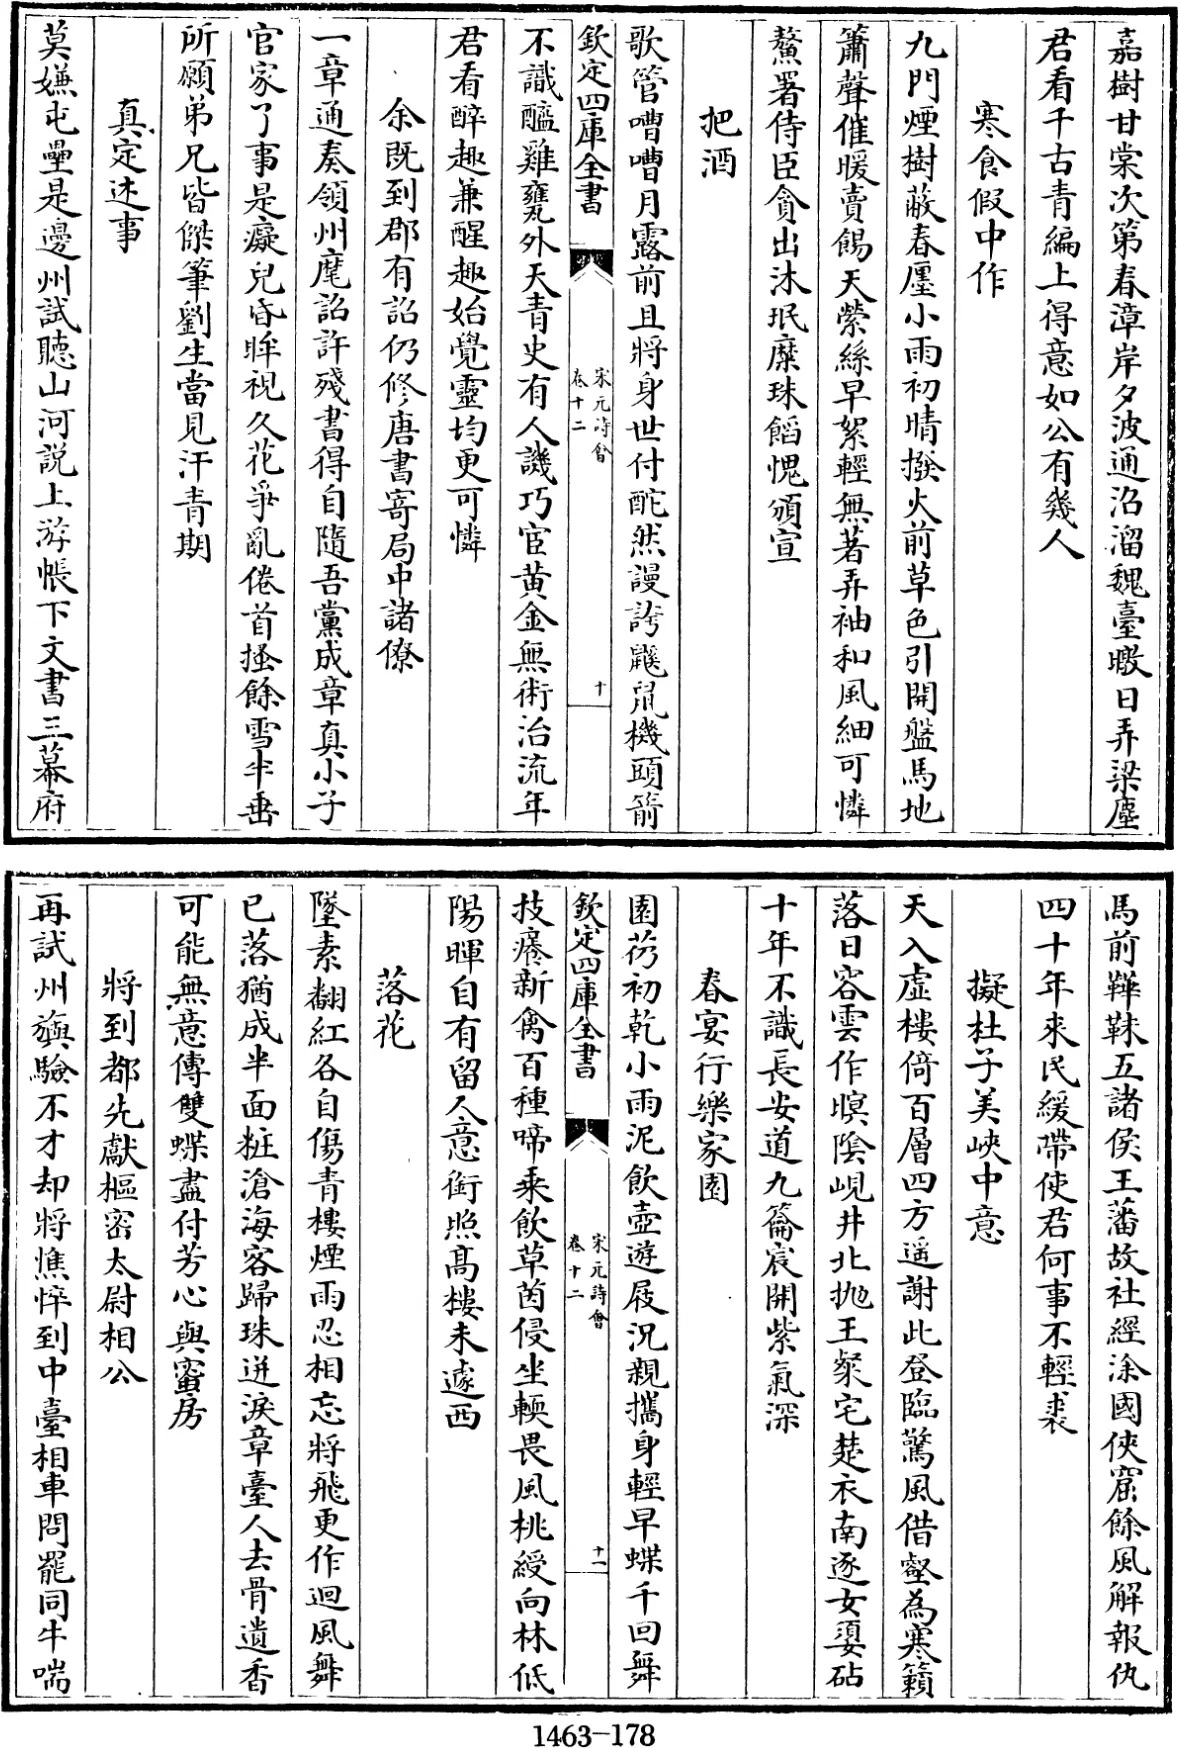 嘉樹甘棠次第春漳岸夕波通沼溜魏臺曒日弄梁塵
君看千古青編上得意如公有幾人
寒食假中作
九門煙樹蔽春廛小雨初晴撥火前草色引開盤馬地
簫聲催暖賣餳天縈絲早絮輕無著弄袖和風細可憐
鰲署侍臣貪出沐珉糜珠餡愧頒宣
把酒
歌管嘈嘈月露前且將身世付酡然謾誇鼷鼠機頭箭
欽定四庫全書
宋元詩會
卷十二
十
不識醯雞甕外天青史有人譏巧宦黄金無術治流年
君看醉趣兼醒趣始覺靈均更可憐
余既到郡有詔仍修唐書寄局中諸僚
一章通奏領州麾詔許殘書得自隨吾黨成章真小子
官家了事是癡兒昏眸視久花爭亂倦首搔餘雪半垂
所願弟兄皆傑筆劉生當見汗青期
真定述事
莫嫌屯壘是邊州試聽山河説上游帳下文書三幕府
馬前鞾靺五諸侯王藩故社經涂國俠窟餘風解報仇
四十年來民緩帶使君何事不輕裘
擬杜子美峽中意
天入虛樓倚百層四方遥謝此登臨驚風借壑為寒籟
落日容雲作暝陰峴井北抛王粲宅楚衣南逐女嬃砧
十年不識長安道九籥宸開紫氣深
春宴行樂家園
園芿初乾小雨泥飲壺遊屐況親攜身輕早蝶千回舞
欽定四庫全書
宋元詩會
卷十二
十一
技癢新禽百種啼乗飲草茵侵坐輭畏風桃綬向林低
陽暉自有留人意銜照髙樓未遽西
落花
墜素翻紅各自傷青樓煙雨忍相忘將飛更作迴風舞
已落猶成半面粧滄海客歸珠迸淚章臺人去骨遺香
可能無意傳雙蝶盡付芳心與蜜房
將到都先獻樞密太尉相公
再試州旟驗不才却將憔悴到中臺相車問罷同牛喘
1463-178